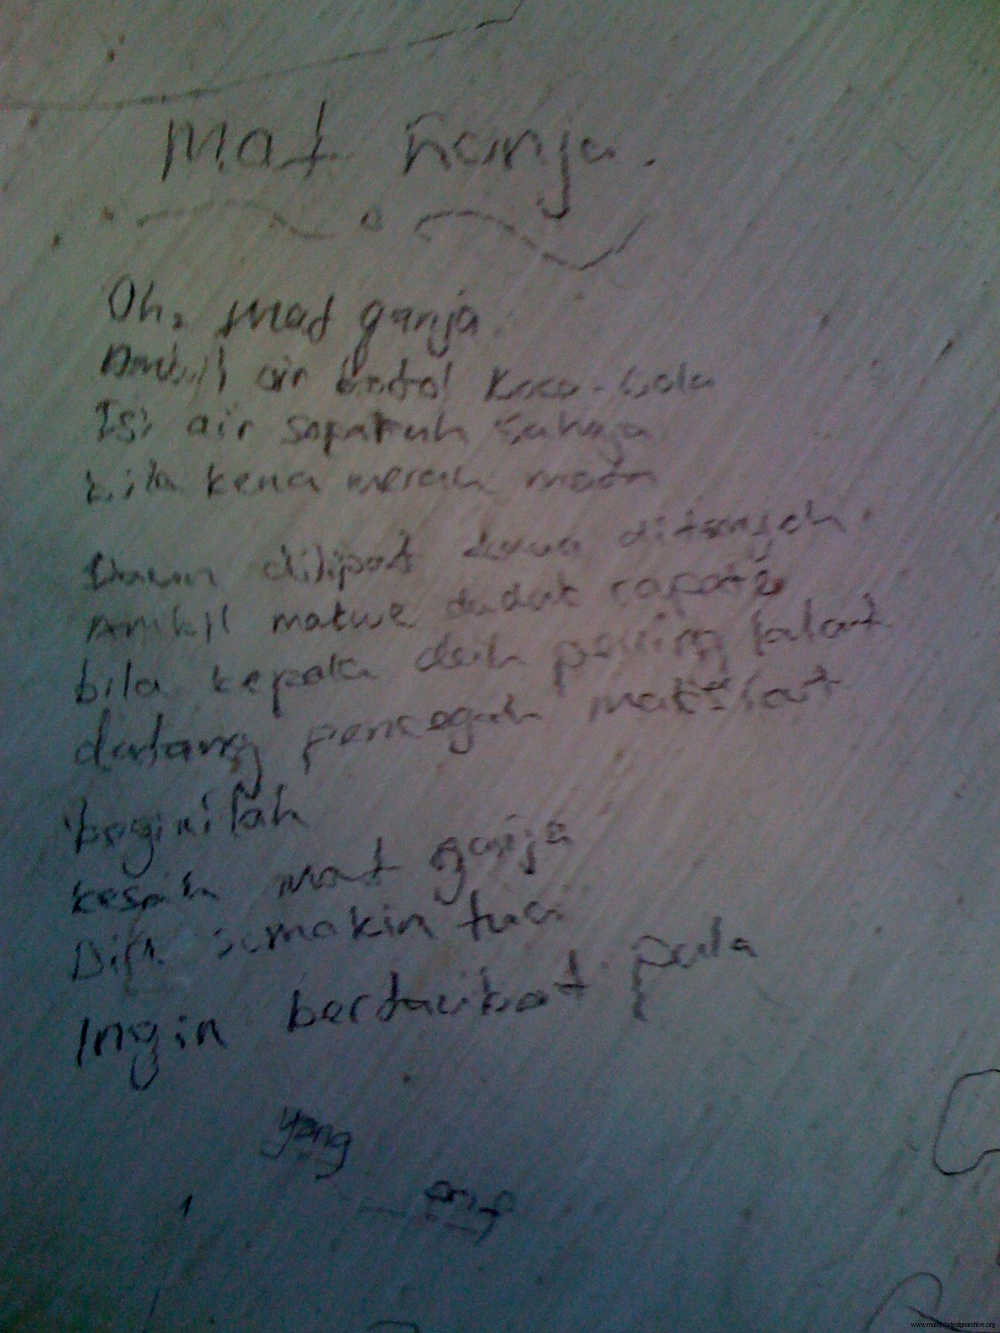 Mat Ganja.
Oh, mat ganja
Ambil air botol koca-cola
Isi air separuh sahaja
bila kena merah mata
Daun dilipat dua ditengah
Ambil duduk rapat2
bila kepala dah pening
datang pencegah
beginilah
kesah mat ganja
Diri semakin tua
Ingin bertaubat pula
yang
www.malaysiadesignarchive.org